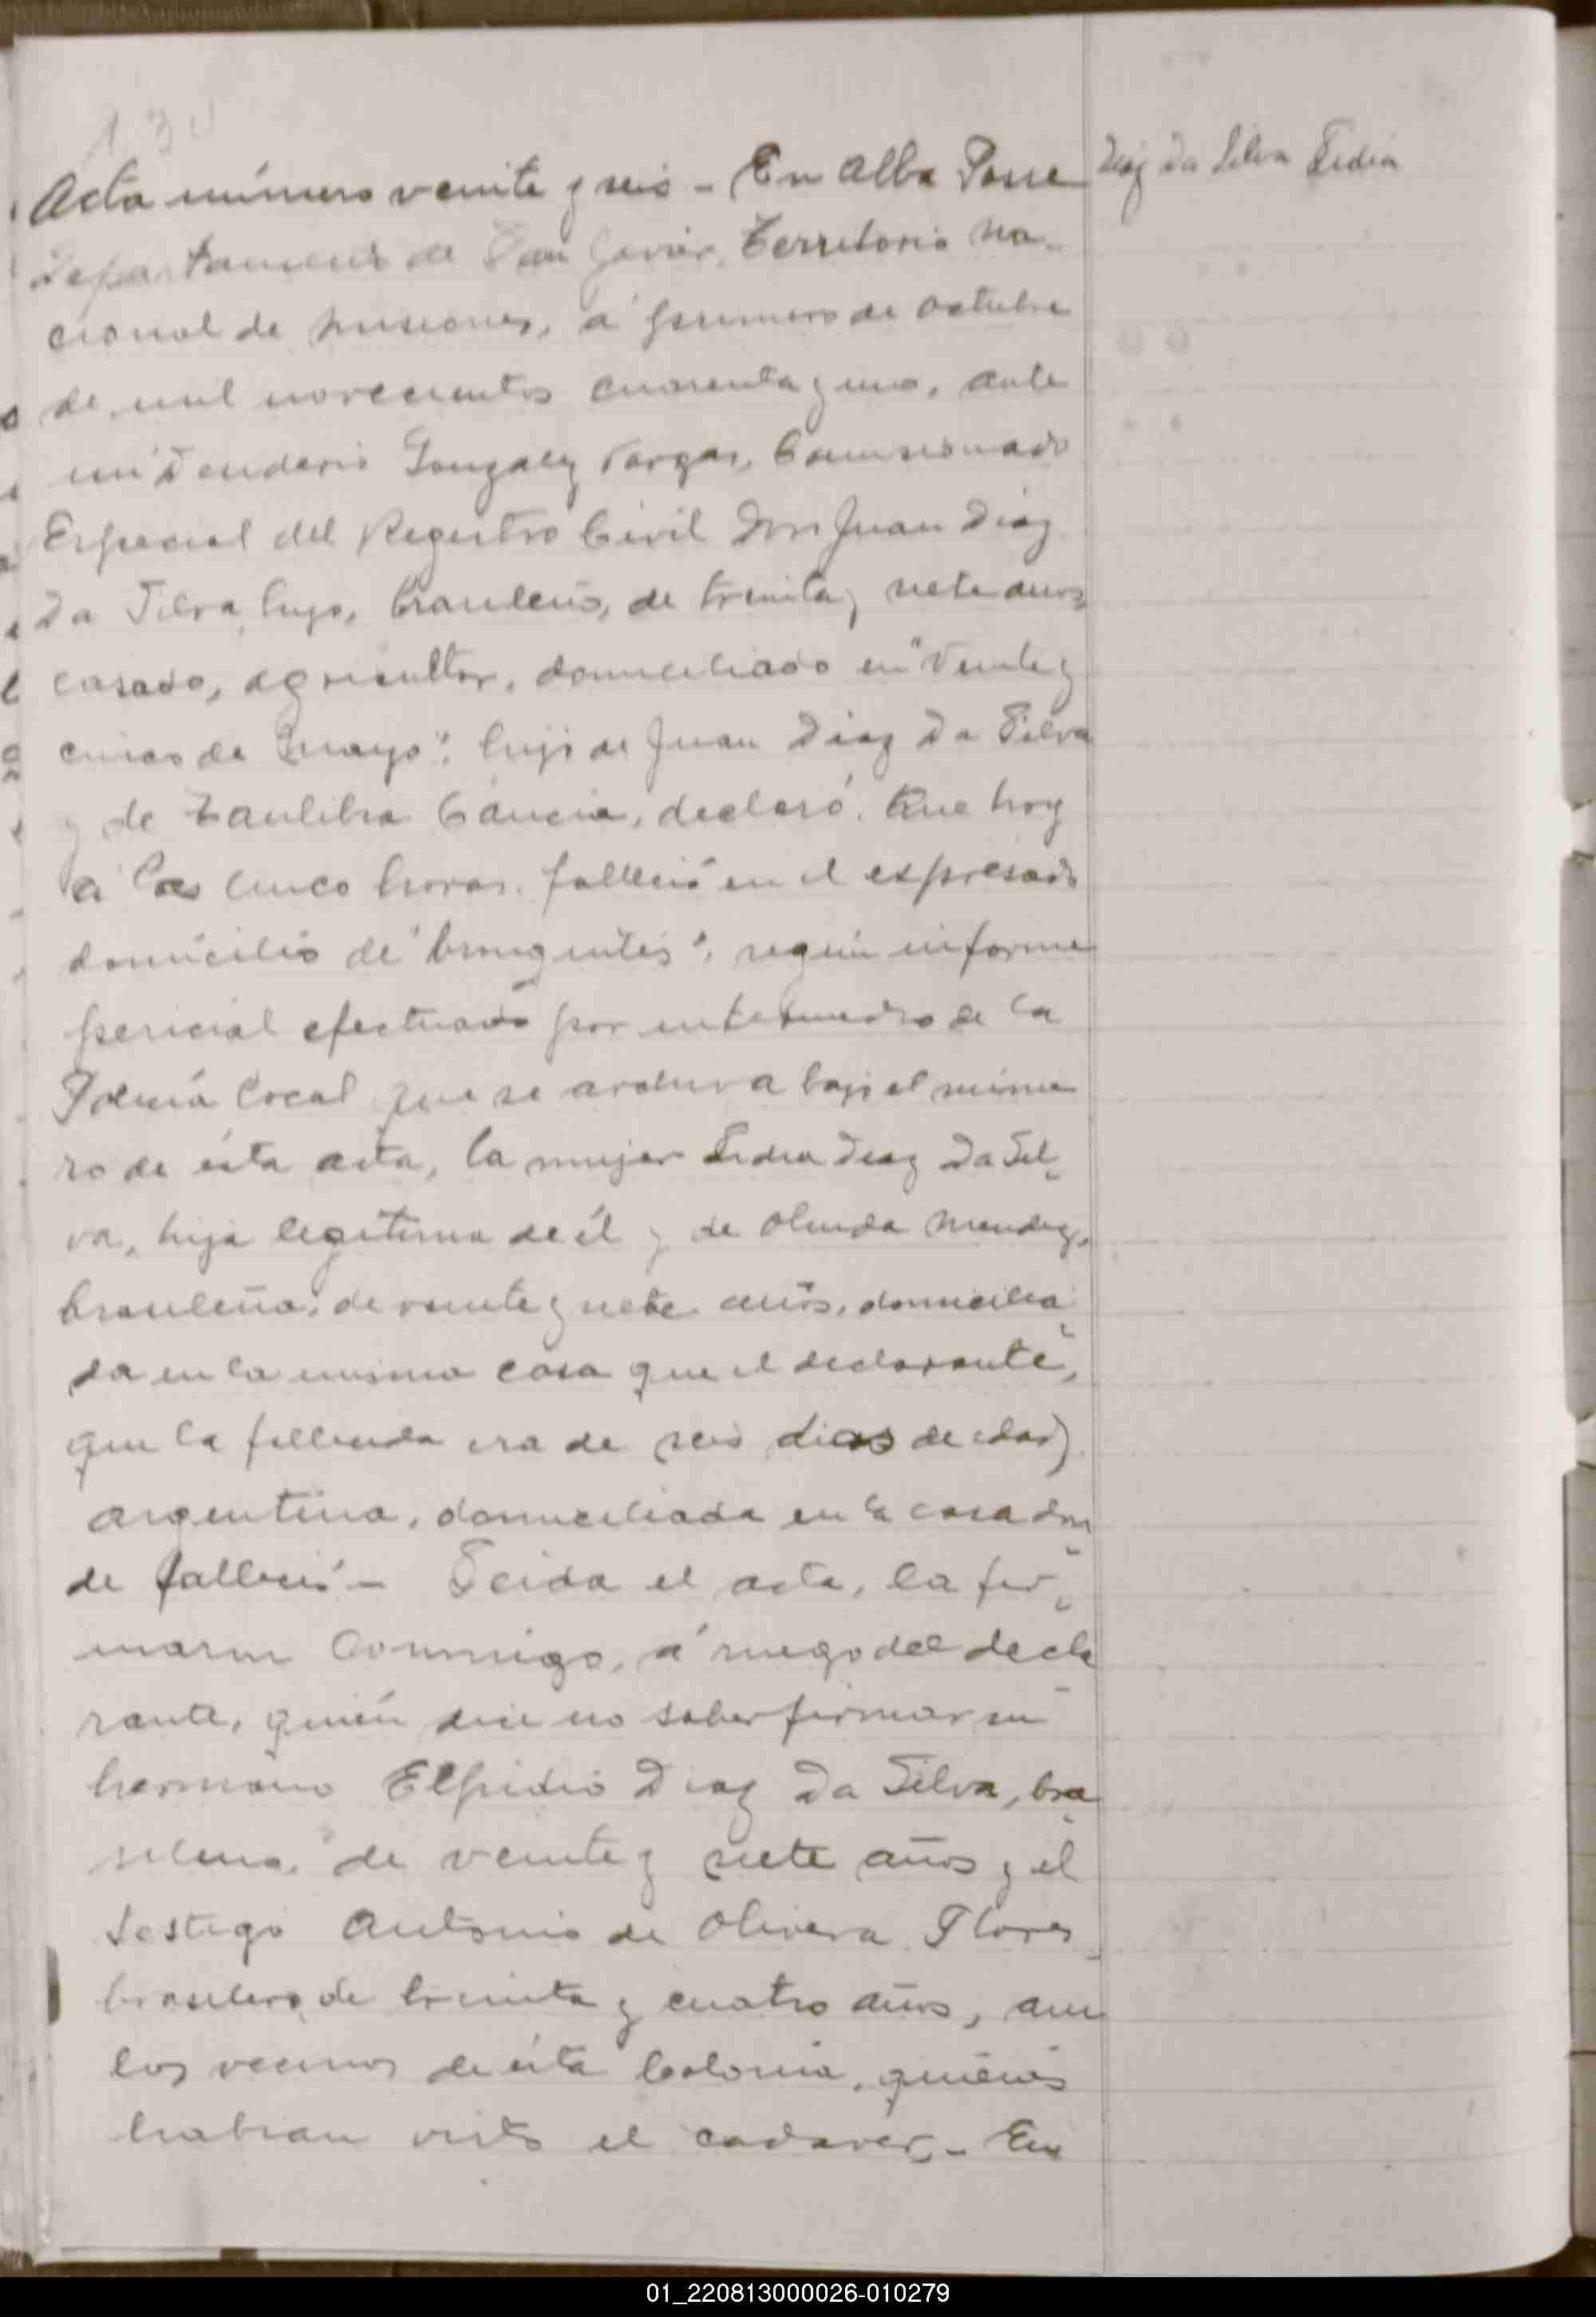 130
Acta número veinte y seis - En Alba Posse
Diaz Da Silva Lidia
Departamento de San Javier, Territorio Na-
cional de Misiones, á primero de octubre
de mil novecientos cuarenta y uno, ante
mi Gonzalez Vargas, Comisionado
Especial del Registro Civil Don Juan Diaz
Da Silva, hijo, brasileño, de treinta y siete años
casado, agricultor, domiciliado en "Veinte y
cinco de Mayo"; hijo de Juan Diaz Da Silva
y de declaró: Que hoy
á las cinco horas, falleció en el expresado
domicilio de "bronquitis", según informe
pericial efectuado por intermedio de la
Policía local que se archiva bajo el núme
ro de ésta acta, la mujer Lidia Diaz Da Sil-
va, hija legitima de él y de Olinda Mendez,
brasileña, de veinte y siete años, domicilia-
da en la misma casa que el declarante,
que la fallecida era de seis dias de edad,
argentina, domiciliada en la casa don-
de falleció - Leida el acta, la fir-
maron conmigo, á ruego del decla-
rante, quién dice no saber firmar su
hermano Elpidio Diaz Da Silva, bra-
sileño, de veinte y siete años y el
testigo Antonio de Olivera Flores,
brasilero, de treinta y cuatro años, am-
bos vecinos de ésta Colonia, quiénes
habian visto el cadaver, - En
01_220813000026-010279